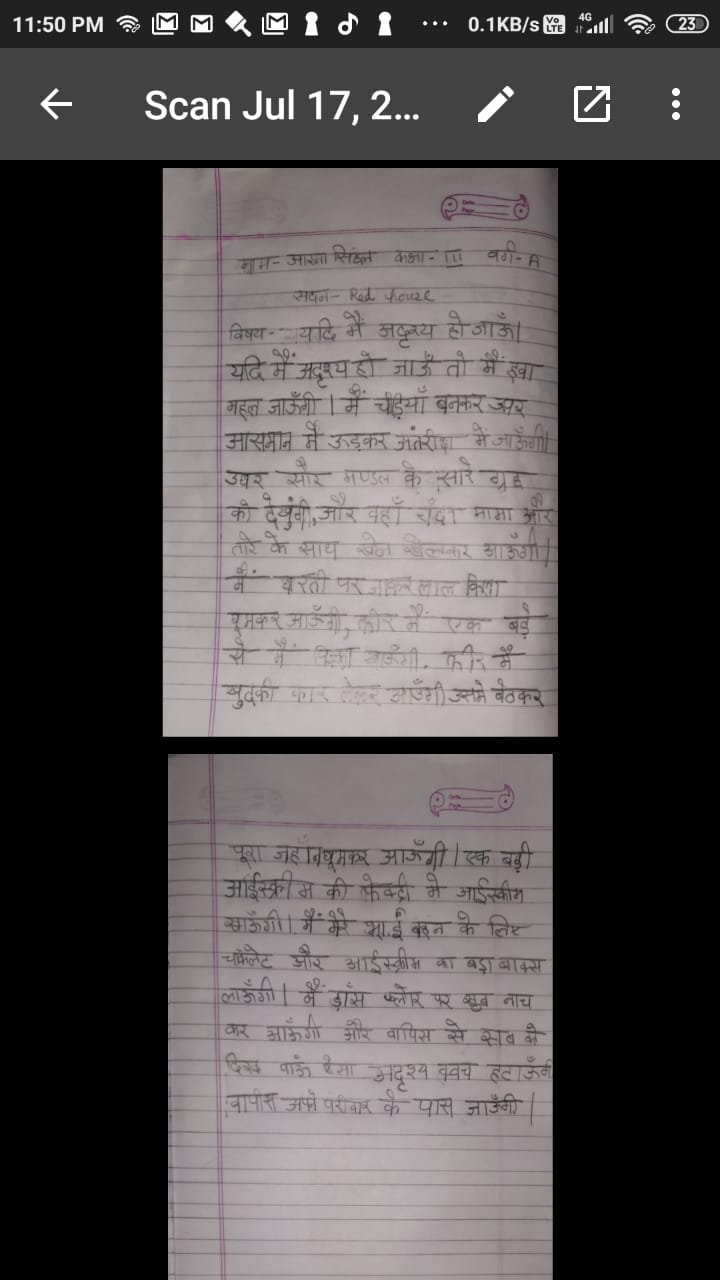 11:50 PM 0.1KB/s Vo LTE 4G 23
Scan Jul 17, 2...
नाम- आस्था सिंदल कक्षा- III वर्ग- A
सदन- Red house
विषय- यदि मैं अदृश्य हो जाऊँ।
यदि मैं अदृश्य हो जाऊँ तो मैं हवा
महल जाऊँगी । मैं चड़ियाँ बनकर ऊपर
आसमान मैं ऊड़कर अंतरीक्ष में जाऊँगी।
उधर सौर मण्डल के सारे ग्रह
को देखुंगी, और वहाँ चँदा मामा और
तारे के साथ खेल खेलकर आऊँगी।
मैं धरती पर जाकर लाल किला
घूमकर आऊँगी, फिर मैं एक बड़े
से मैं पिज्जा खाऊँगी. फिर मैं
खुदकी कार लेकर आऊँगी उसमे बेठकर
पूरा जहाँन घूमकर आऊँगी । एक बड़ी
आईस्क्रीम की फेक्ट्री मे आईस्क्रीम
खाऊँगी। मैं मेरे भाई बहन के लिए
चॉकलेट और आईस्क्रीम का बड़ा बाक्स
लाऊँगी । मैं डाँस फ्लोर पर खुब नाच
कर आऊँगी और वापिस से सब को
दिख पाऊँ ऐसा अदृश्य कवच हटाऊँगी
वापीस अपने परीवार के पास जाऊँगी |